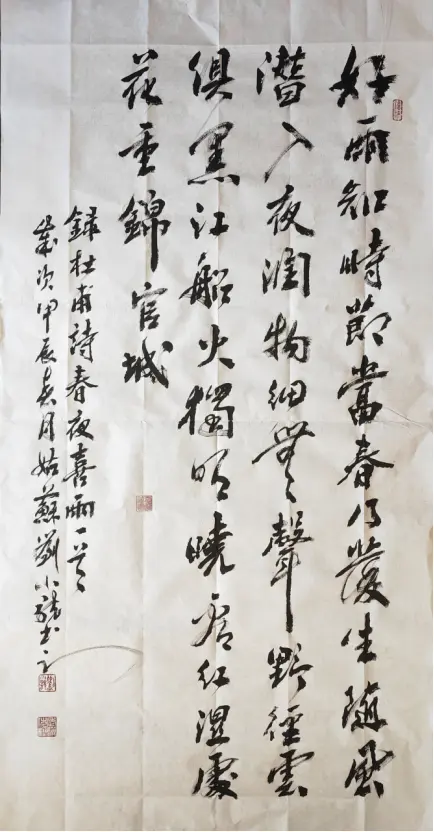 好雨知時節當春乃發生隨風
潛入夜潤物細無聲野徑雲
俱黑江船火獨明曉看紅濕處
花重錦官城
錄杜甫詩春夜喜雨一首
歲次甲辰春月姑蘇劉小龍書